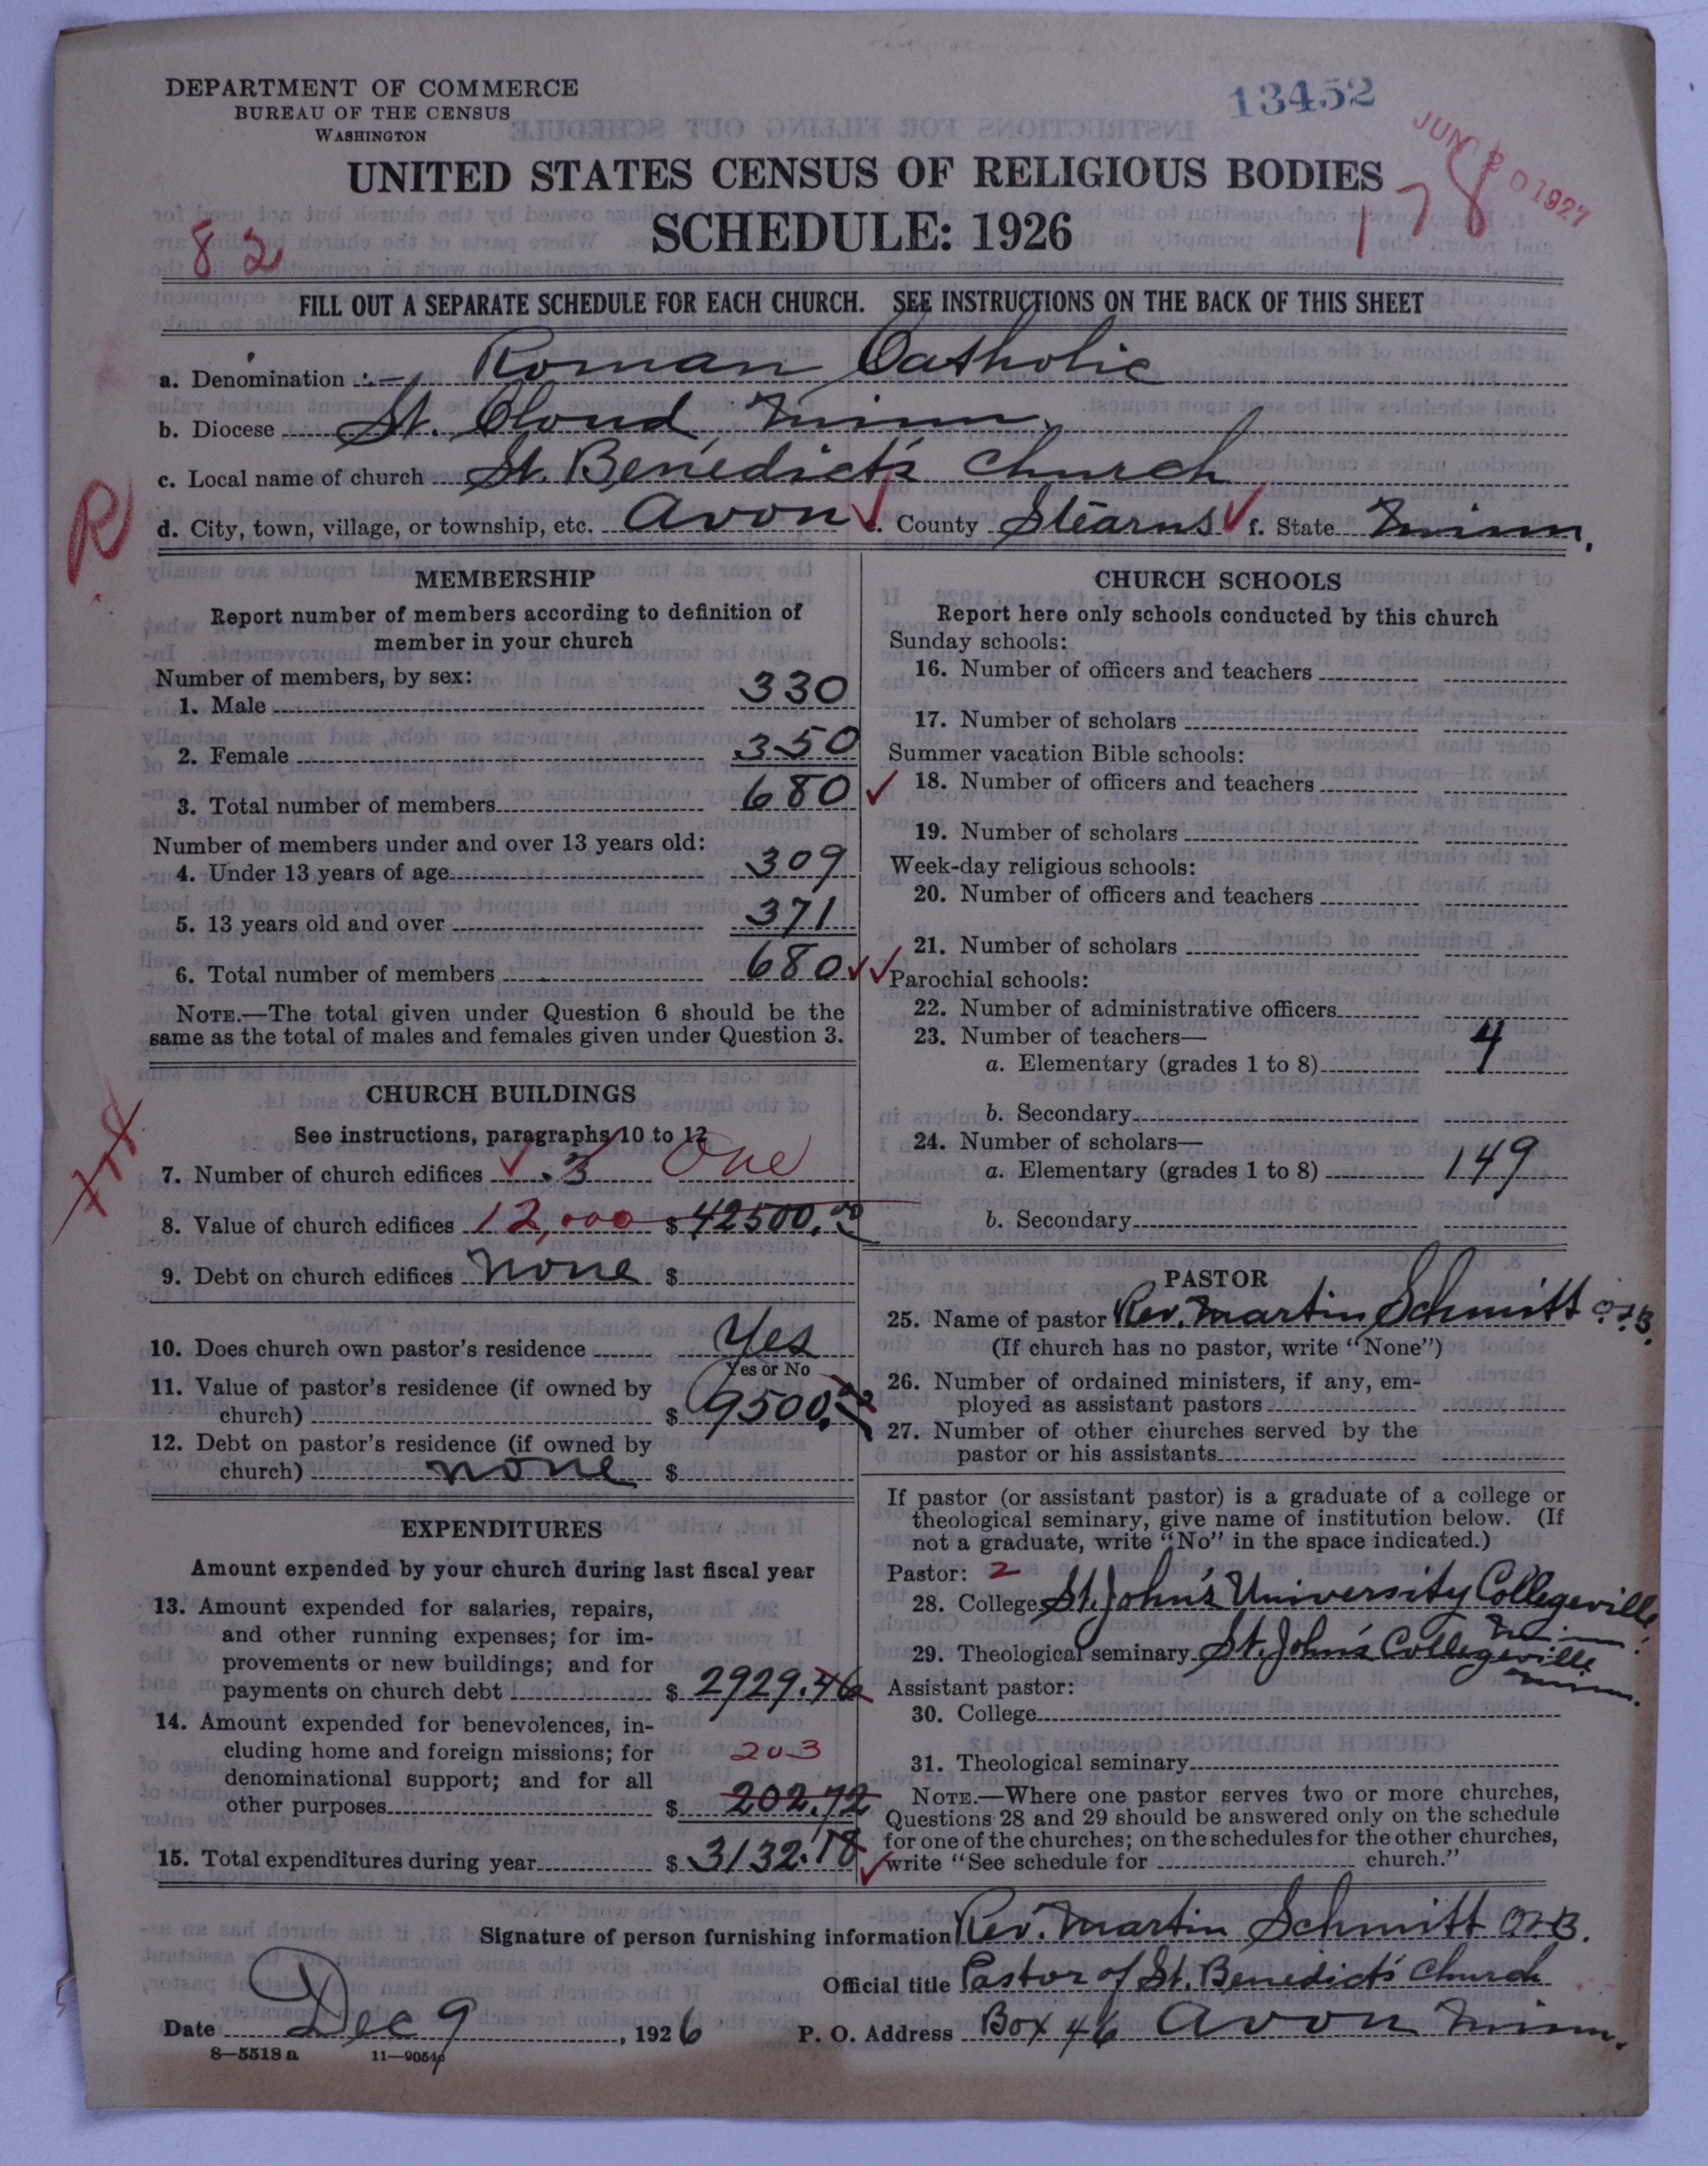 DEPARTMENT OF COMMERCE
BUREAU OF THE CENSUS
WASHINGTON
13452
JUN 20 1927
UNITED STATES CENSUS OF RELIGIOUS BODIES
178
SCHEDULE: 1926
82
FILL OUT A SEPARATE SCHEDULE FOR EACH CHURCH. SEE INSTRUCTIONS ON THE BACK OF THIS SHEET
a. Denomination :- Roman Catholic
b. Diocese St. Cloud, Minn.
c. Local name of church St. Benedict's Church
R
d. City, town, village, or township, etc. Avon e. County Stearns f. State Minn.
MEMBERSHIP
Report number of members according to definition of
member in your church
Number of members, by sex:
1. Male 330
2. Female 350
3. Total number of members 680
Number of members under and over 13 years old:
4. Under 13 years of age 309
5. 13 years old and over 371
6. Total number of members 680
NOTE.—The total given under Question 6 should be the
same as the total of males and females given under Question 3.
CHURCH BUILDINGS
See instructions, paragraphs 10 to 12
7. Number of church edifices 3 One
8. Value of church edifices 12,000 $ 42500.00
9. Debt on church edifices None $
10. Does church own pastor's residence Yes
Yes or No
11. Value of pastor's residence (if owned by
church) $ 9500.00
12. Debt on pastor's residence (if owned by
church) None $
EXPENDITURES
Amount expended by your church during last fiscal year
13. Amount expended for salaries, repairs,
and other running expenses; for im-
provements or new buildings; and for
payments on church debt $ 2929.46
14. Amount expended for benevolences, in-
cluding home and foreign missions; for 203
denominational support; and for all
other purposes $ 202.72
15. Total expenditures during year $ 3132.18
CHURCH SCHOOLS
Report here only schools conducted by this church
Sunday schools:
16. Number of officers and teachers
17. Number of scholars
Summer vacation Bible schools:
18. Number of officers and teachers
19. Number of scholars
Week-day religious schools:
20. Number of officers and teachers
21. Number of scholars
Parochial schools:
22. Number of administrative officers
23. Number of teachers—
a. Elementary (grades 1 to 8) 4
b. Secondary
24. Number of scholars—
a. Elementary (grades 1 to 8) 149
b. Secondary
PASTOR
25. Name of pastor Rev. Martin Schmitt O.S.B.
(If church has no pastor, write "None")
26. Number of ordained ministers, if any, em-
ployed as assistant pastors
27. Number of other churches served by the
pastor or his assistants
If pastor (or assistant pastor) is a graduate of a college or
theological seminary, give name of institution below. (If
not a graduate, write "No" in the space indicated.)
Pastor: 2
28. College St. John's University Collegeville
Minn.
29. Theological seminary St. John's Collegeville
Minn.
Assistant pastor:
30. College
31. Theological seminary
NOTE.—Where one pastor serves two or more churches,
Questions 28 and 29 should be answered only on the schedule
for one of the churches; on the schedules for the other churches,
write "See schedule for church."
Signature of person furnishing information Rev. Martin Schmitt O.S.B.
Official title Pastor of St. Benedict's Church
Date Dec 9, 1926 P. O. Address Box 46 Avon Minn.
8—5518 a 11—9054